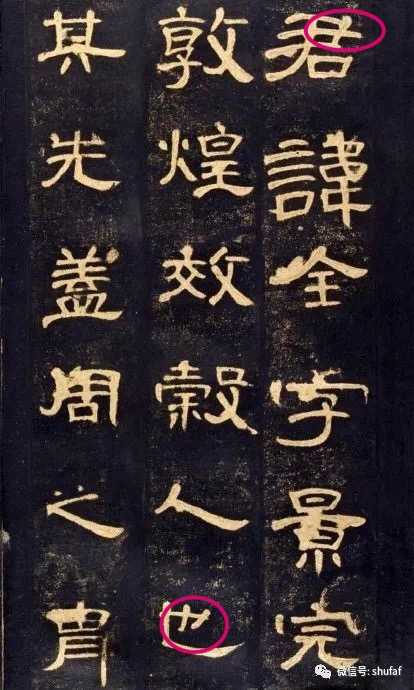 君諱全字景完
敦煌效穀人也
其先蓋周之胄
微信号: shufaf